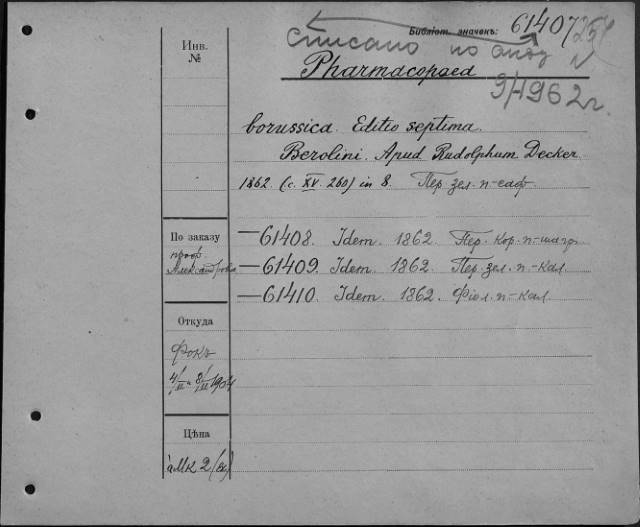 Библіот. значекъ: 61407
списано по акту N 254
9/I 1962 г.
Инв.
№
Pharmacopaea
borussica. Editio septima.
Berolini. Apud Rudolphum Decker
1862. (с. XV. 260) in 8. Пер. зел. п-саф.
По заказу
проф.
Александрова
—61408. Idem. 1862. Пер. кор. п-шагр.
—61409. Idem. 1862. Пер. зел. п.-кал.
—61410. Idem. 1862. Фіол. п-кал
Откуда
Фокъ
1904
Цѣна
Мк 2